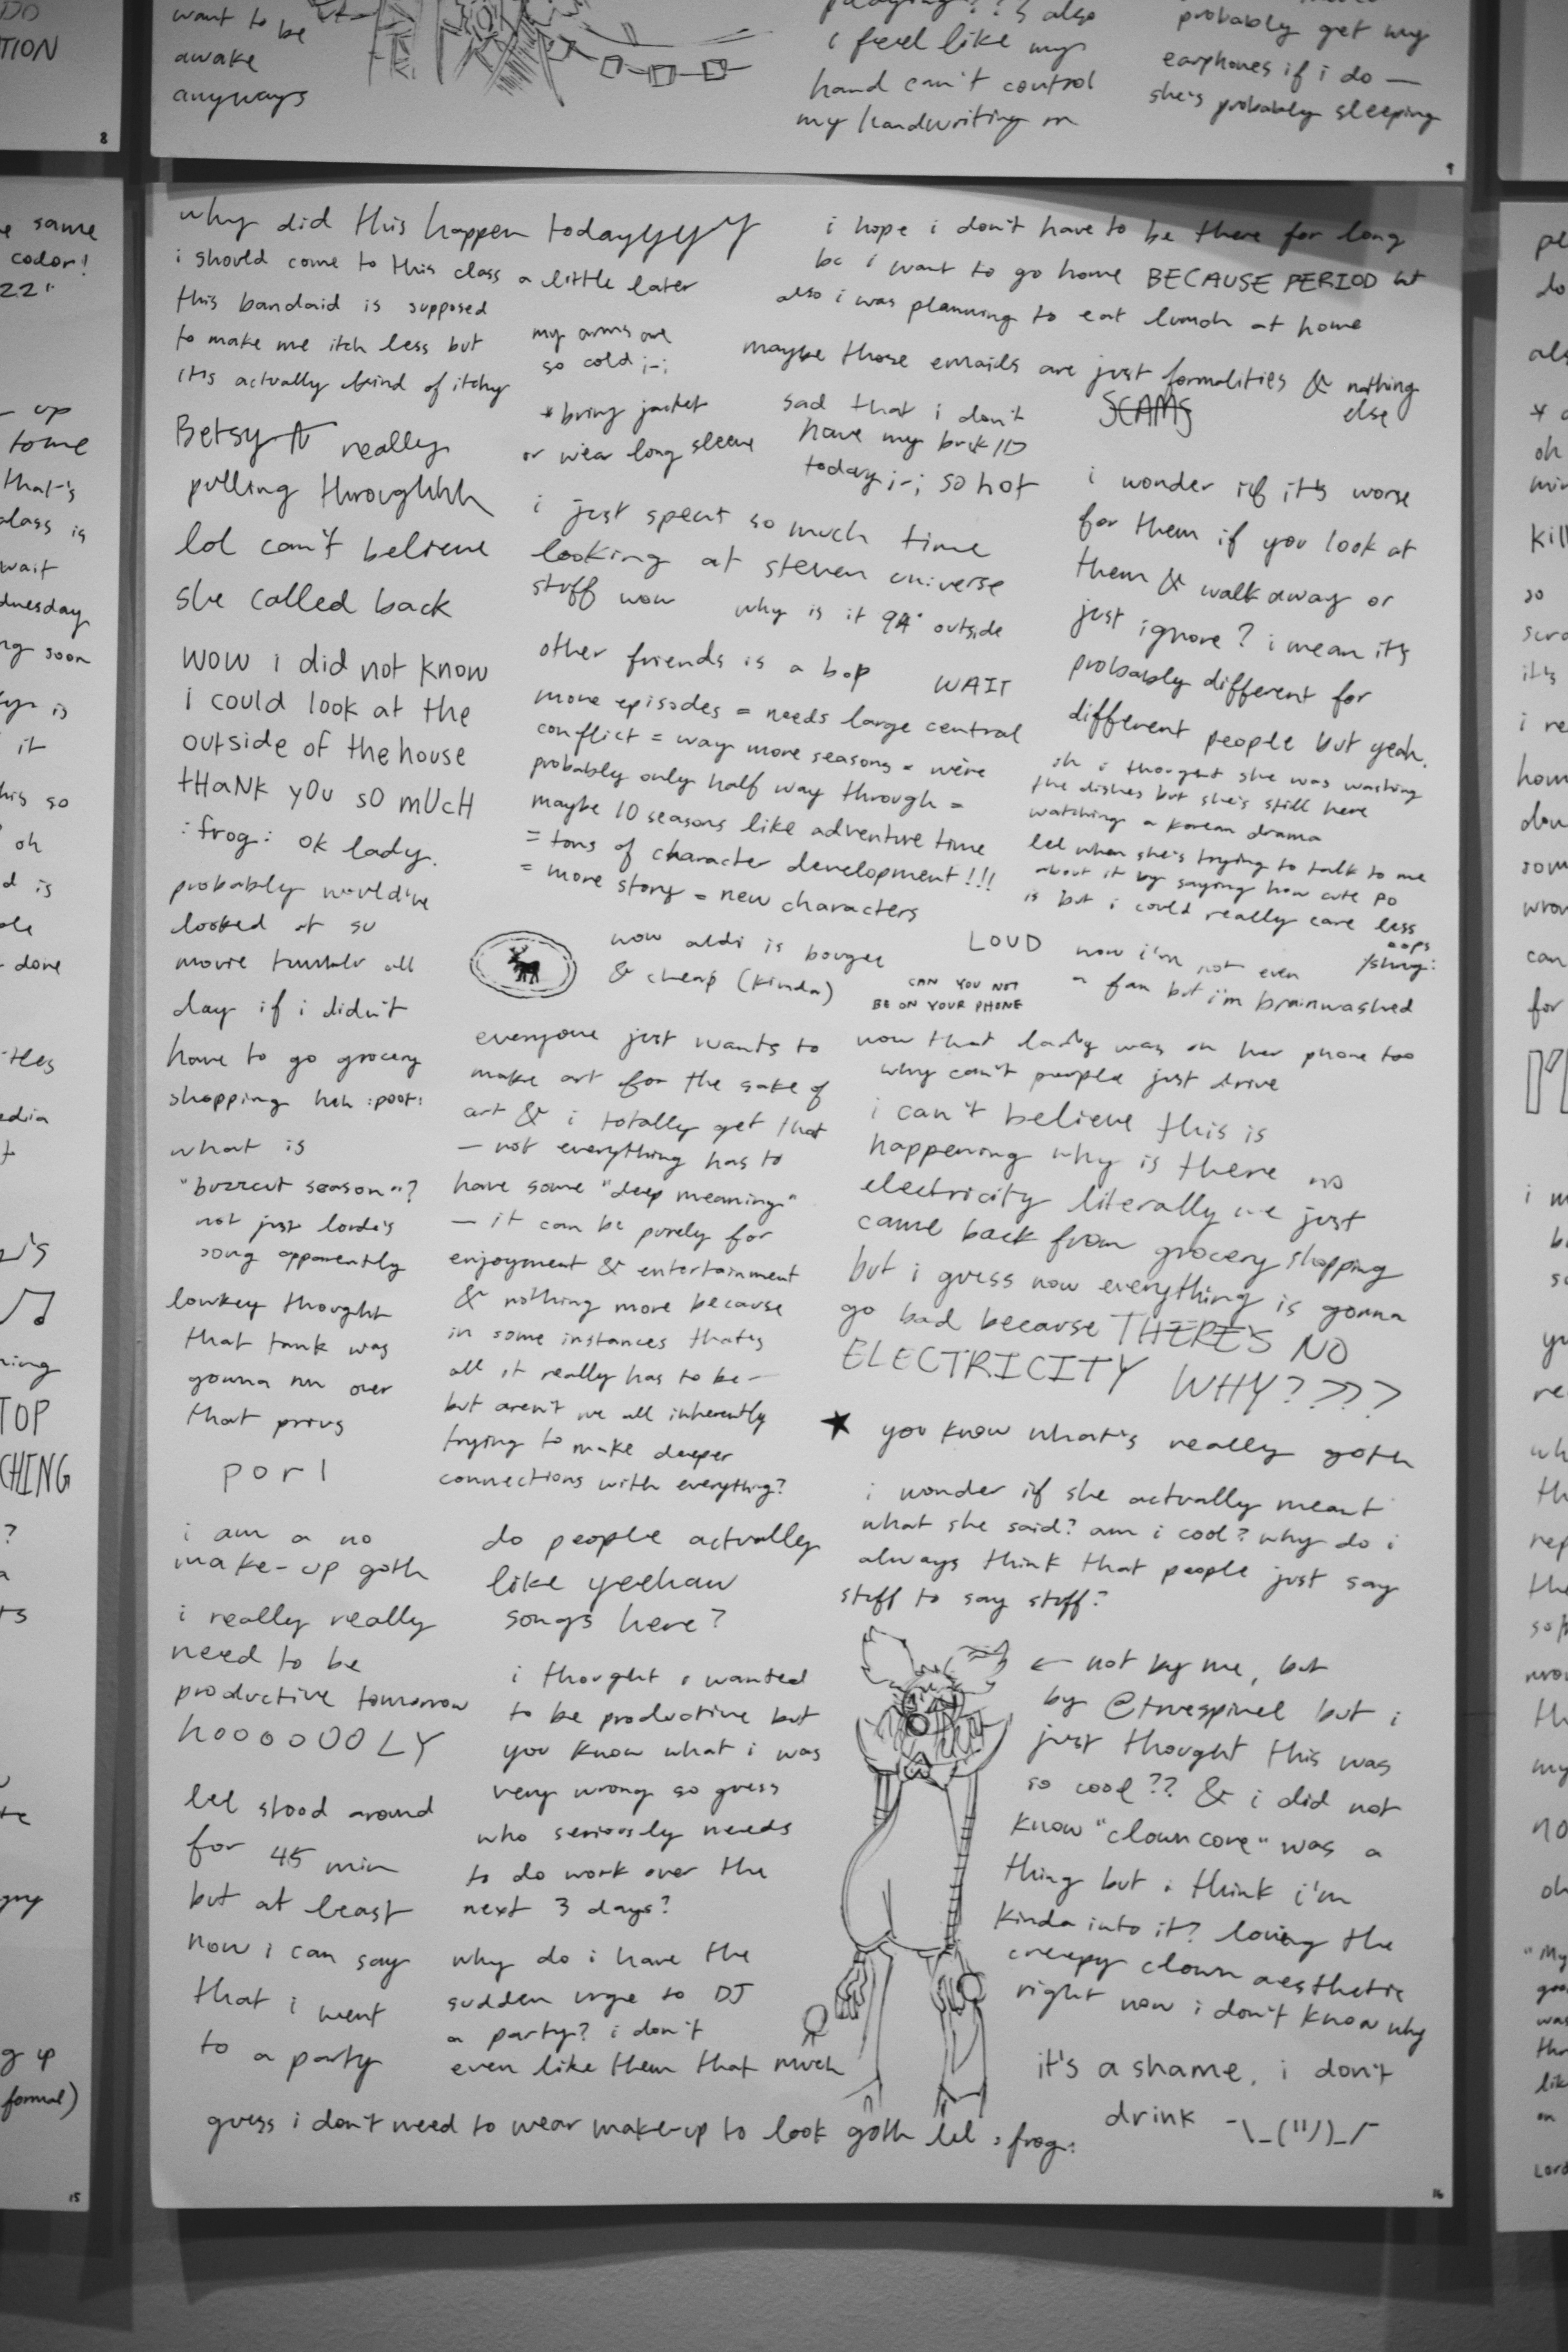 DO
TION
8
want to be
awake
anyways
i feel like my
hand can't control
my handwriting rn
probably get my
earphones if i do —
she's probably sleeping
9
same
color!
22"
up
to me
that's
class is
wait
soon
is
it
so
oh
is
done
TOP
CHING
?
up
formal)
15
why did this happen todayyyyy
i should come to this class a little later
this bandaid is supposed
to make me itch less but
it's actually kind of itchy
my arms are
so cold ;-;
* bring jacket
or wear long sleeve
Betsy really
pulling throughhhh
lol can't believe
she called back
wow i did not know
i could look at the
outside of the house
tHaNK yOu sO mUcH
:frog: ok lady.
probably would've
looked at su
movie tumblr all
day if i didn't
have to go grocery
shopping heh :poot:
what is
"buzzcut season"?
not just lorde's
song apparently
lowkey thought
that tank was
gonna run over
that prius
porl
i am a no
make-up goth
i really really
need to be
productive tomorrow
hoooooOOLY
lel stood around
for 45 min
but at least
now i can say
that i went
to a party
i just spent so much time
looking at steven universe
stuff wow
why is it 94° outside
other friends is a bop
WAIT
more episodes = needs large central
conflict = way more seasons = we're
probably only half way through =
maybe 10 seasons like adventure time
= tons of character development!!!
= more story = new characters
wow aldi is bougee
& cheap (kinda)
everyone just wants to
make art for the sake of
art & i totally get that
— not everything has to
have some "deep meaning"
— it can be purely for
enjoyment & entertainment
& nothing more because
in some instances that's
all it really has to be —
but aren't we all inherently
trying to make deeper
connections with everything?
do people actually
like yeehaw
songs here?
i thought i wanted
to be productive but
you know what i was
very wrong so guess
who seriously needs
to do work over the
next 3 days?
why do i have the
sudden urge to DJ
a party? i don't
even like them that much
i hope i don't have to be there for long
bc i want to go home BECAUSE PERIOD
also i was planning to eat lunch at home
maybe those emails are just formalities & nothing
else
SCAMS
sad that i don't
have my buck ID
today ;-; so hot
i wonder if it's worse
for them if you look at
them & walk away or
just ignore? i mean it's
probably different for
different people but yeah.
oh i thought she was washing
the dishes but she's still here
watching a korean drama
lel when she's trying to talk to me
about it by saying how cute po
is but i could really care less
oops
/shrug:
LOUD
CAN YOU NOT
BE ON YOUR PHONE
now i'm not even
a fan but i'm brainwashed
wow that lady was on her phone too
why can't people just drive
i can't believe this is
happening why is there no
electricity literally we just
came back from grocery shopping
but i guess now everything is gonna
go bad because THERE'S NO
ELECTRICITY WHY????
★ you know what's really goth
i wonder if she actually meant
what she said? am i cool? why do i
always think that people just say
stuff to say stuff?
← not by me, but
by @truespinel but i
just thought this was
so cool?? & i did not
know "clowncore" was a
thing but i think i'm
kinda into it? loving the
creepy clown aesthetic
right now i don't know why
it's a shame, i don't
drink ¯\_(")_/¯
guess i don't need to wear make-up to look goth lel :frog:
16